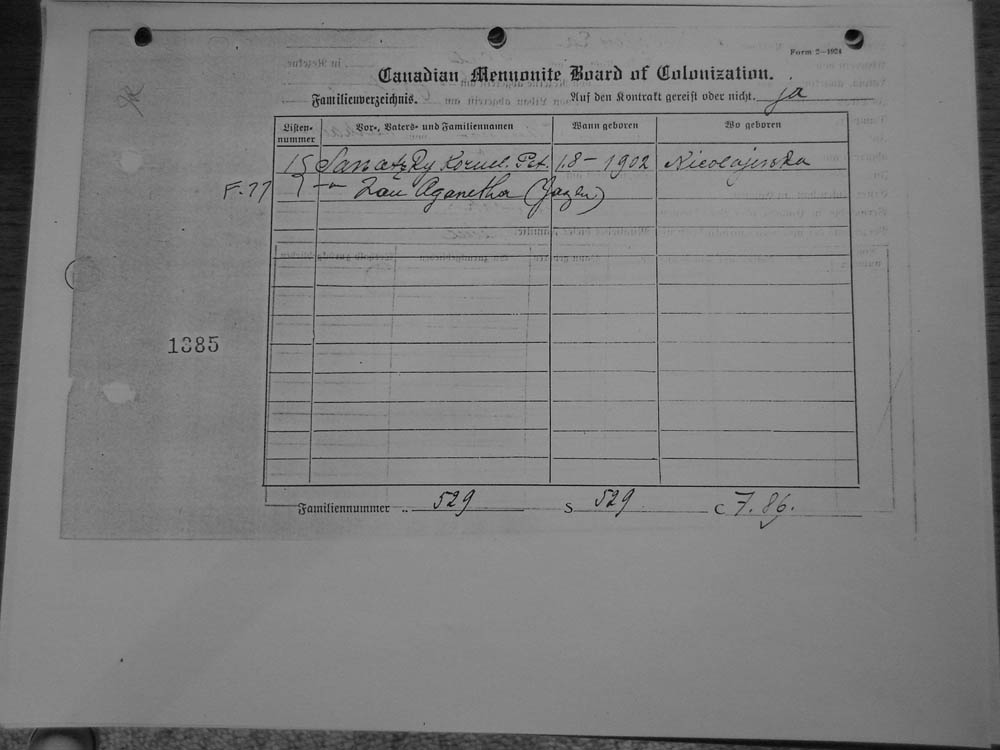 Form 2—1924
Canadian Mennonite Board of Colonization.
Familienverzeichnis. Auf den Kontrakt gereist oder nicht. ja
Listen-nummer Vor-, Vaters- und Familiennamen Wann geboren Wo geboren
15 Sawatzky Kornel. Pet. 18 – 1902 Nicolajewka
F. 77 Aganetha
1385
Familiennummer .. 529 S 529 C 7. 86.